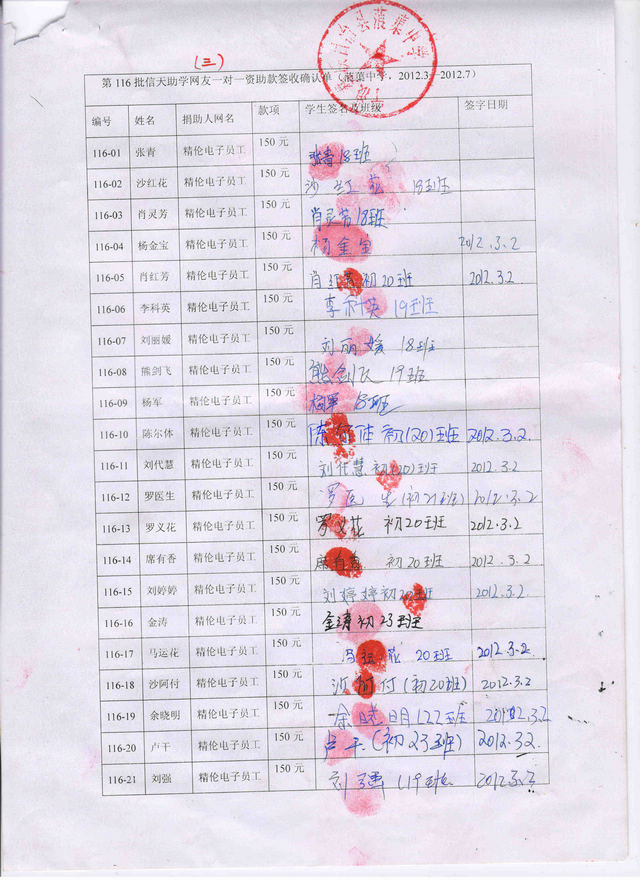 (三)
第 116 批信天助学网友一对一资助款签收确认单（蒗蕖中学，2012.3—2012.7）
编号 姓名 捐助人网名 款项 学生签名及班级 签字日期
116-01 张青 精伦电子员工 150 元 张青 18班
116-02 沙红花 精伦电子员工 150 元 沙红花 18班
116-03 肖灵芳 精伦电子员工 150 元 肖灵芳 18班
116-04 杨金宝 精伦电子员工 150 元 杨金宝 2012.3.2
116-05 肖红芳 精伦电子员工 150 元 肖红芳 初20班 2012.3.2
116-06 李科英 精伦电子员工 150 元 李科英 19班
116-07 刘丽媛 精伦电子员工 150 元 刘丽媛 18班
116-08 熊剑飞 精伦电子员工 150 元 熊剑飞 19班
116-09 杨军 精伦电子员工 150 元 杨军 18班
116-10 陈尔体 精伦电子员工 150 元 陈尔体 初(20)班 2012.3.2
116-11 刘代慧 精伦电子员工 150 元 刘代慧 初(20)班 2012.3.2
116-12 罗医生 精伦电子员工 150 元 罗医生(初21班) 2012.3.2
116-13 罗义花 精伦电子员工 150 元 罗义花 初20班 2012.3.2
116-14 席有香 精伦电子员工 150 元 席有香 初20班 2012.3.2
116-15 刘婷婷 精伦电子员工 150 元 刘婷婷 初20班 2012.3.2
116-16 金涛 精伦电子员工 150 元 金涛 初23班
116-17 马运花 精伦电子员工 150 元 20班 2012.3.2
116-18 沙阿付 精伦电子员工 150 元 沙阿付(初20班) 2012.3.2
116-19 余晓明 精伦电子员工 150 元 余晓明 122班 2012.3.2
116-20 卢干 精伦电子员工 150 元 卢干(初23班) 2012.3.2
116-21 刘强 精伦电子员工 150 元 刘强 (19班 2012.3.2